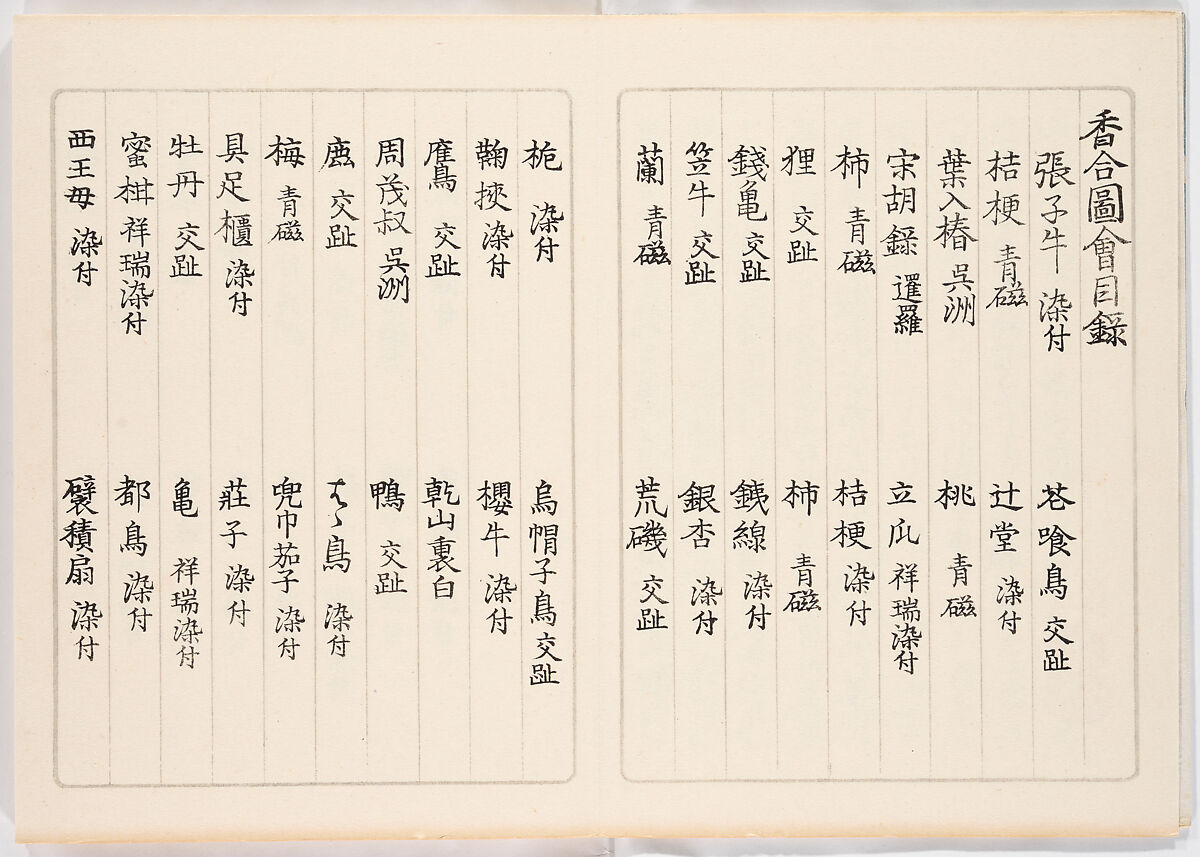 香合圖會目録
張子牛 染付 苍喰鳥 交趾
桔梗 青磁 辻堂 染付
葉入椿 呉洲 桃 青磁
宋胡録 暹羅 立瓜 祥瑞染付
柿 青磁 桔梗 染付
狸 交趾 柿 青磁
錢亀 交趾 銕線 染付
笠牛 交趾 銀杏 染付
蘭 青磁 荒磯 交趾
梔 染付 烏帽子鳥 交趾
鞠挾 染付 櫻牛 染付
鷹鳥 交趾 乾山裏白
周茂叔 呉洲 鴨 交趾
鹿 交趾 はゝ鳥 染付
梅 青磁 兜巾茄子 染付
具足櫃 染付 莊子 染付
牡丹 交趾 亀 祥瑞染付
蜜柑 祥瑞染付 都鳥 染付
西王母 染付 襞積扇 染付